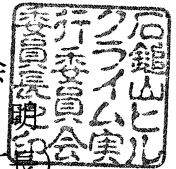 石鎚山ヒル
クライム実
行委員会
委員長印
明